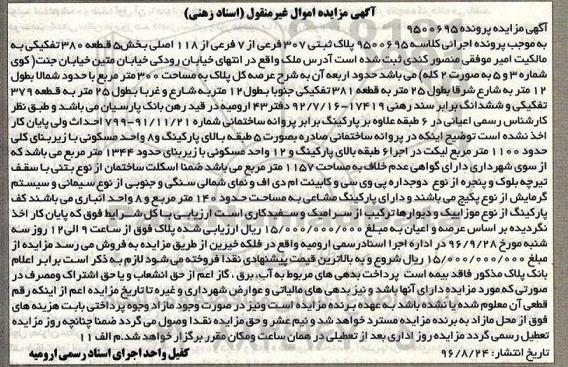 آگهی مزایده اموال غیرمنقول (اسناد رهنی)
آگهی مزایده پرونده ۹۵۰۰۶۹۵
به موجب پرونده اجرائی کلاسه ۹۵۰۰۶۹۵ پلاک ثبتی ۳۰۷ فرعی از ۷ فرعی از ۱۱۸ اصلی بخش۵ قطعه ۳۸۰ تفکیکی به
مالکیت امیر موفقی منصور کندی ثبت شده است آدرس ملک واقع در انتهای خیابان رودکی خیابان متین خیابان جنت( کوی
شماره ۳و ۵ به صورت ۲ کله) می باشد حدود اربعه آن به شرح عرصه کل پلاک به مساحت ۳۰۰ متر مربع با حدود شمالا بطول
۱۲ متر به شارع شرقا بطول ۲۵ متر به قطعه ۳۸۱ تفکیکی جنوبا بطول ۱۲ متر به شارع و غربا بطول ۲۵ متر به قطعه ۳۷۹
تفکیکی و ششدانگ برابر سند رهنی ۱۷۴۱۹-۹۲/۷/۱۶ دفتر۴۳ ارومیه در قید رهن بانک پارسیان می باشد و طبق نظر
کارشناس رسمی اعیانی در ۶ طبقه علاوه بر پارکینگ برابر پروانه ساختمانی شماره ۹۱/۱۱/۲۱-۷۹۹ احداث ولی پایان کار
اخذ نشده است توضیح اینکه در پروانه ساختمانی صادره بصورت ۵ طبقه بالای پارکینگ و۸ واحد مسکونی با زیربنای کلی
حدود ۱۱۰۰ متر مربع لیکت در اجرا ۶ طبقه بالای پارکینگ و ۱۲ واحد مسکونی با زیربنای حدود ۱۳۴۴ متر مربع می باشد که
از سوی شهرداری دارای گواهی عدم خلاف به مساحت ۱۱۵۷ متر مربع می باشد ضمنا اسکلت ساختمان از نوع بتنی با سقف
تیرچه بلوک و پنجره از نوع دوجداره پی وی سی و کابینت ام دی اف و نمای شمالی سنگی و جنوبی از نوع سیمانی و سیستم
گرمایش از نوع پکیج می باشند و دارای پارکینگ مشاعی به مساحت حدود ۱۴۰ متر مربع و ۸ واحد انباری می باشند کف
پارکینگ از نوع موزاییک و دیوارها ترکیب از سرامیک و سفیدکاری است ارزیابی با کل شرایط فوق که پایان کار اخذ
نگردیده بر اساس عرصه و اعیان به مبلغ ۱۵/۰۰۰/۰۰۰/۰۰۰ ریال ارزیابی شده پلاک فوق از ساعت ۹ الی ۱۲ روز سه
شنبه مورخ ۹۶/۹/۲۸ در اداره اجرا اسنادرسمی ارومیه واقع در فلکه خیبرین از طریق مزایده به فروش می رسد مزایده از
مبلغ ۱۵/۰۰۰/۰۰۰/۰۰۰ ریال شروع و به بالاترین قیمت پیشنهادی نقدا فروخته می شود لازم به ذکر است برابر اعلام
بانک پلاک مذکور فاقد بیمه است پرداخت بدهی های مربوط به آب، برق ، گاز اعم از حق انشعاب و یا حق اشتراک ومصرف در
صورتی که مورد مزایده دارای آنها باشد و نیز بدهی های مالیاتی و عوارض شهرداری و غیره تا تاریخ مزایده اعم از اینکه رقم
قطعی آن معلوم شده یا نشده باشد به عهده برنده مزایده است ونیز در صورت وجود مازاد وجوه پرداختی بابت هزینه های
فوق از محل مازاد به برنده مزایده مسترد خواهد شد و نیم عشر و حق مزایده نقدا وصول می گردد ضمنا چنانچه روز مزایده
تعطیل رسمی گردد مزایده روز اداری بعد از تعطیلی در همان ساعت ومکان مقرر برگزار خواهد شد.م الف ۱۱
تاریخ انتشار: ۹۶/۸/۲۴
کفیل واحد اجرای اسناد رسمی ارومیه